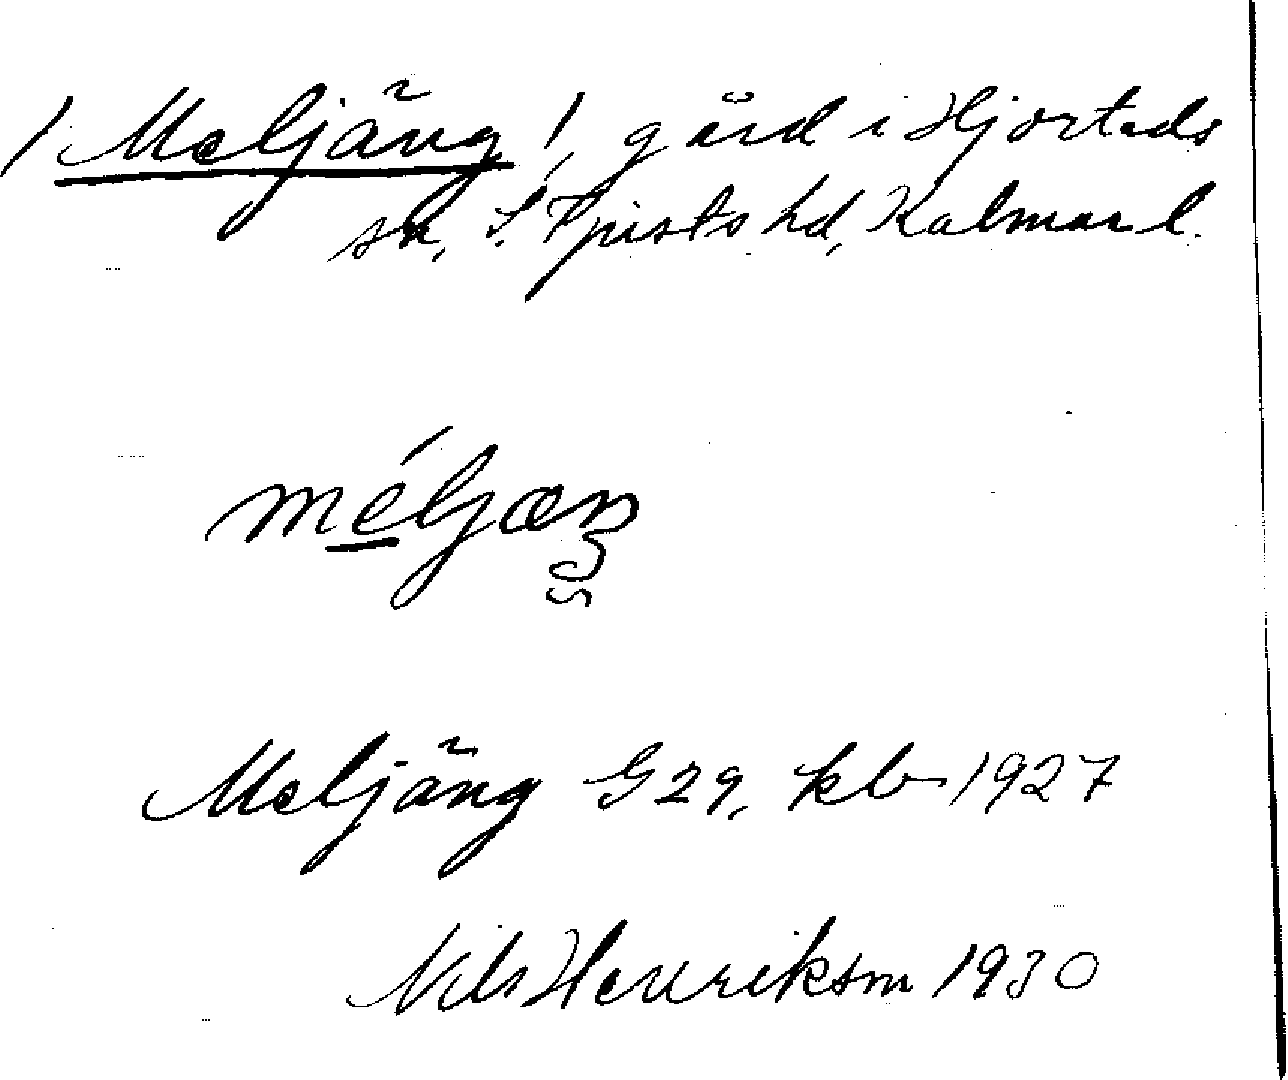 /Meljäng/, gård i Hjorteds
sn, S. Tjusts hd, Kalmar l.
méljæŋ
Meljäng G 29, kb 1927
Nils Henrikson 1930